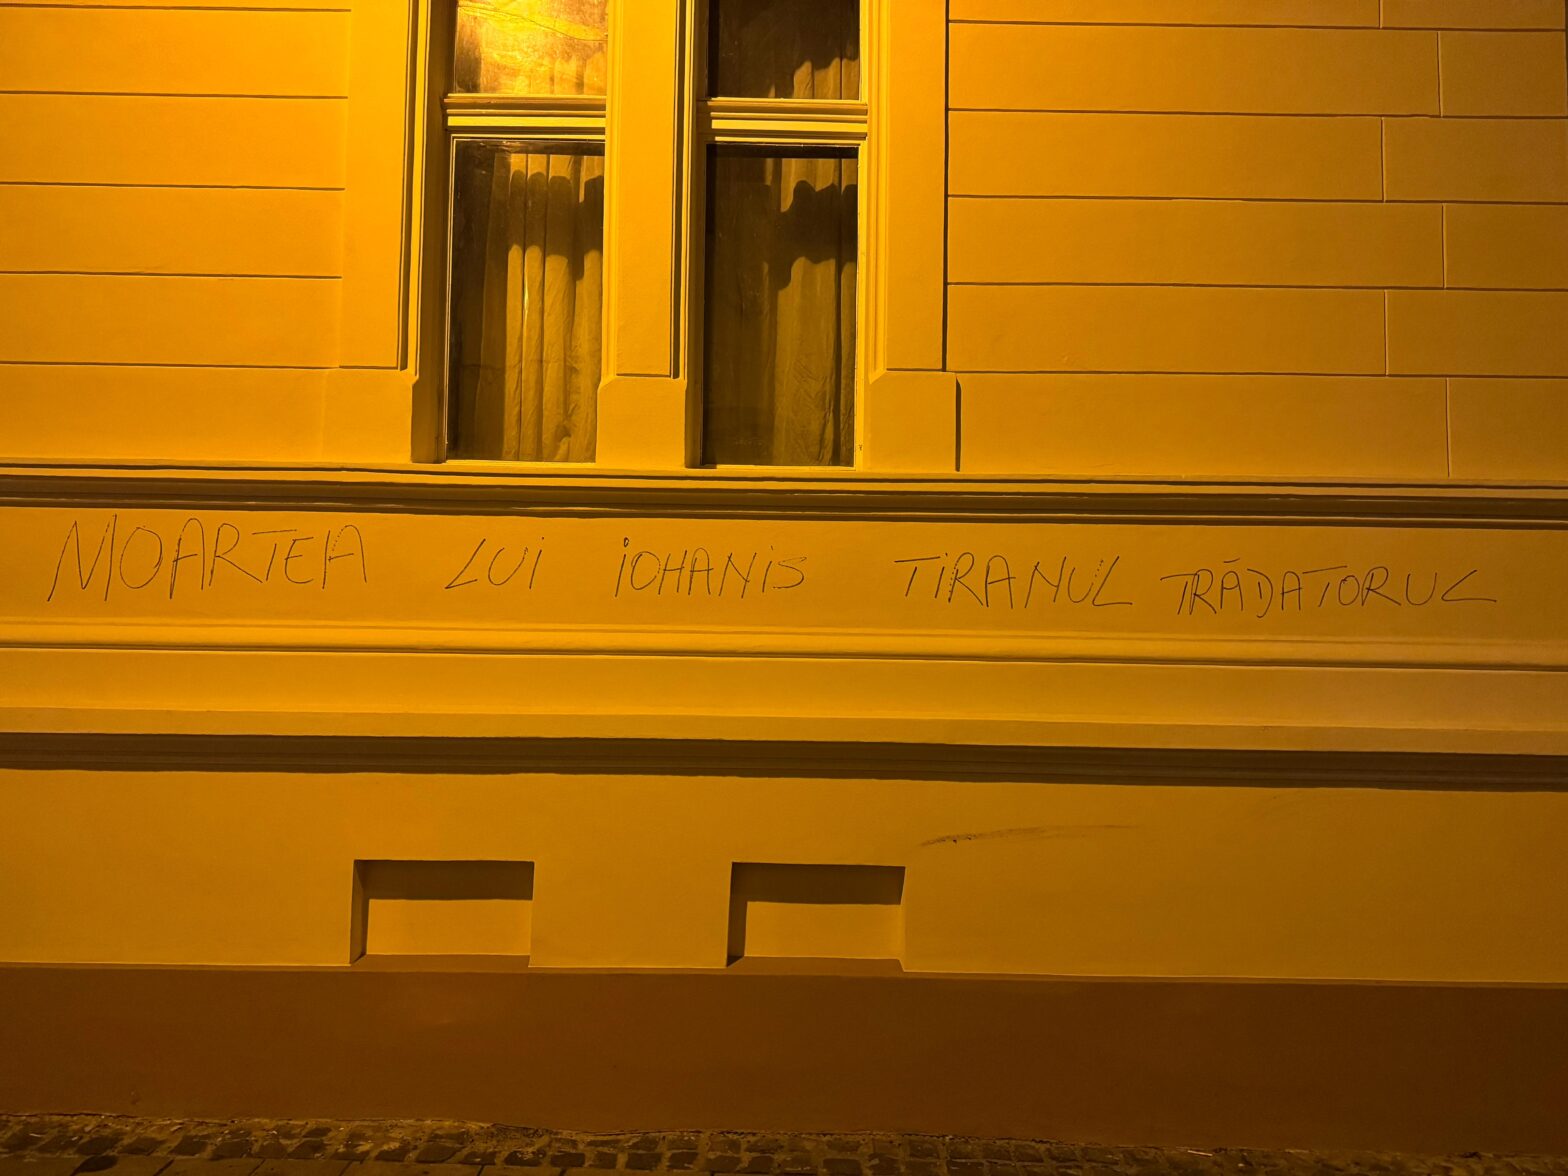 MOARTEA LUI iOHANiS TiRANUL TRĂDATORUL